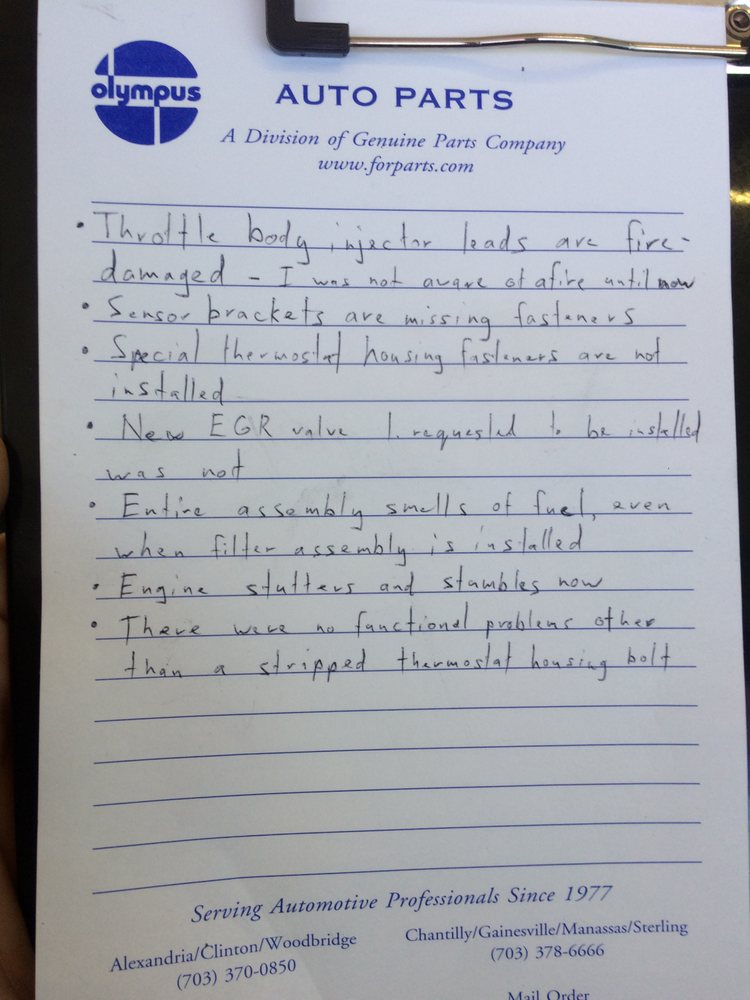 olympus
AUTO PARTS
A Division of Genuine Parts Company
www.forparts.com
• Throttle body injector leads are fire-
damaged - I was not aware of a fire until now
• Sensor brackets are missing fasteners
• Special thermostat housing fasteners are not
installed
• New EGR valve I requested to be installed
was not
• Entire assembly smells of fuel, even
when filter assembly is installed
• Engine stutters and stumbles now
• There were no functional problems other
than a stripped thermostat housing bolt
Serving Automotive Professionals Since 1977
Alexandria/Clinton/Woodbridge
(703) 370-0850
Chantilly/Gainesville/Manassas/Sterling
(703) 378-6666
Mail Order